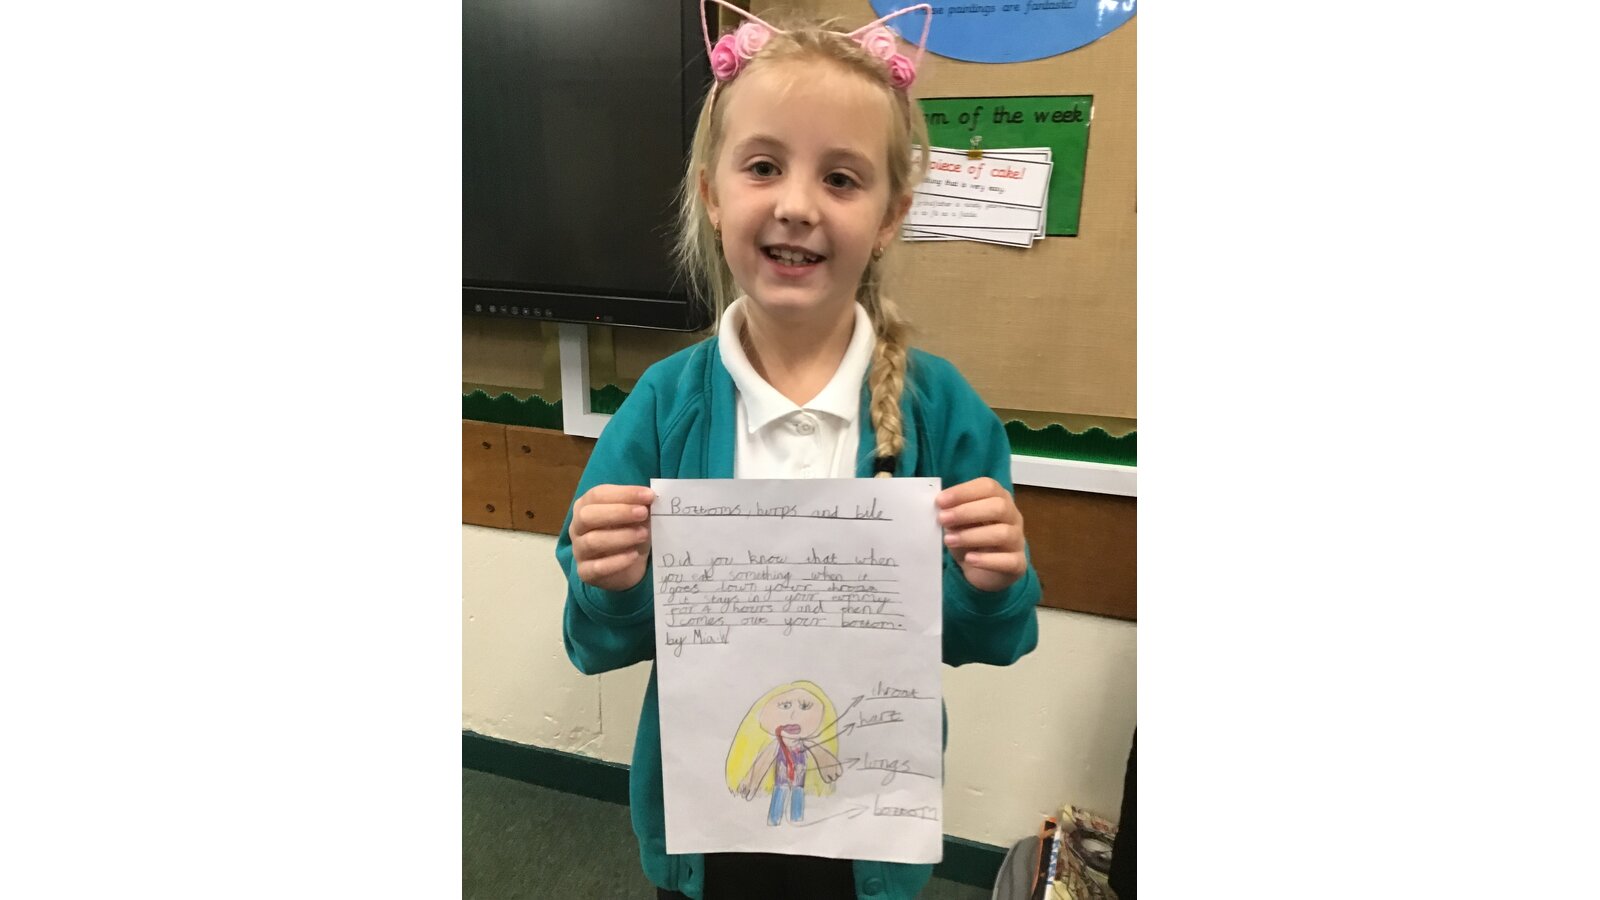 these paintings are fantastic!
of the week
piece of cake!
thing that is very easy.
Bottoms, burps and bile
Did you know that when
you eat something when it
goes down your throat
it stays in your tummy
for 4 hours and then
comes out your bottom.
by Mia.V
throat
hart
longs
bottom